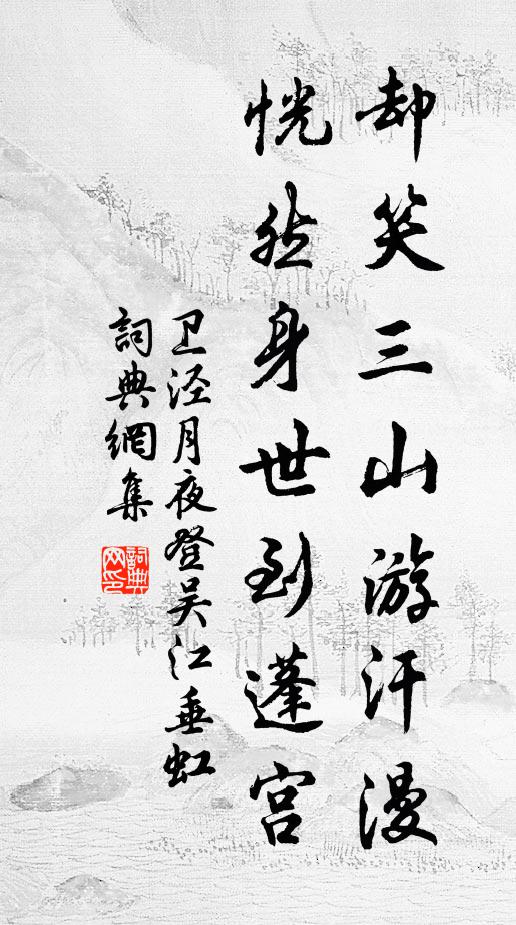 却笑三山游汗漫
恍然身世到蓬宫
卫泾月夜登吴江垂虹
詞典網集
詞典网印